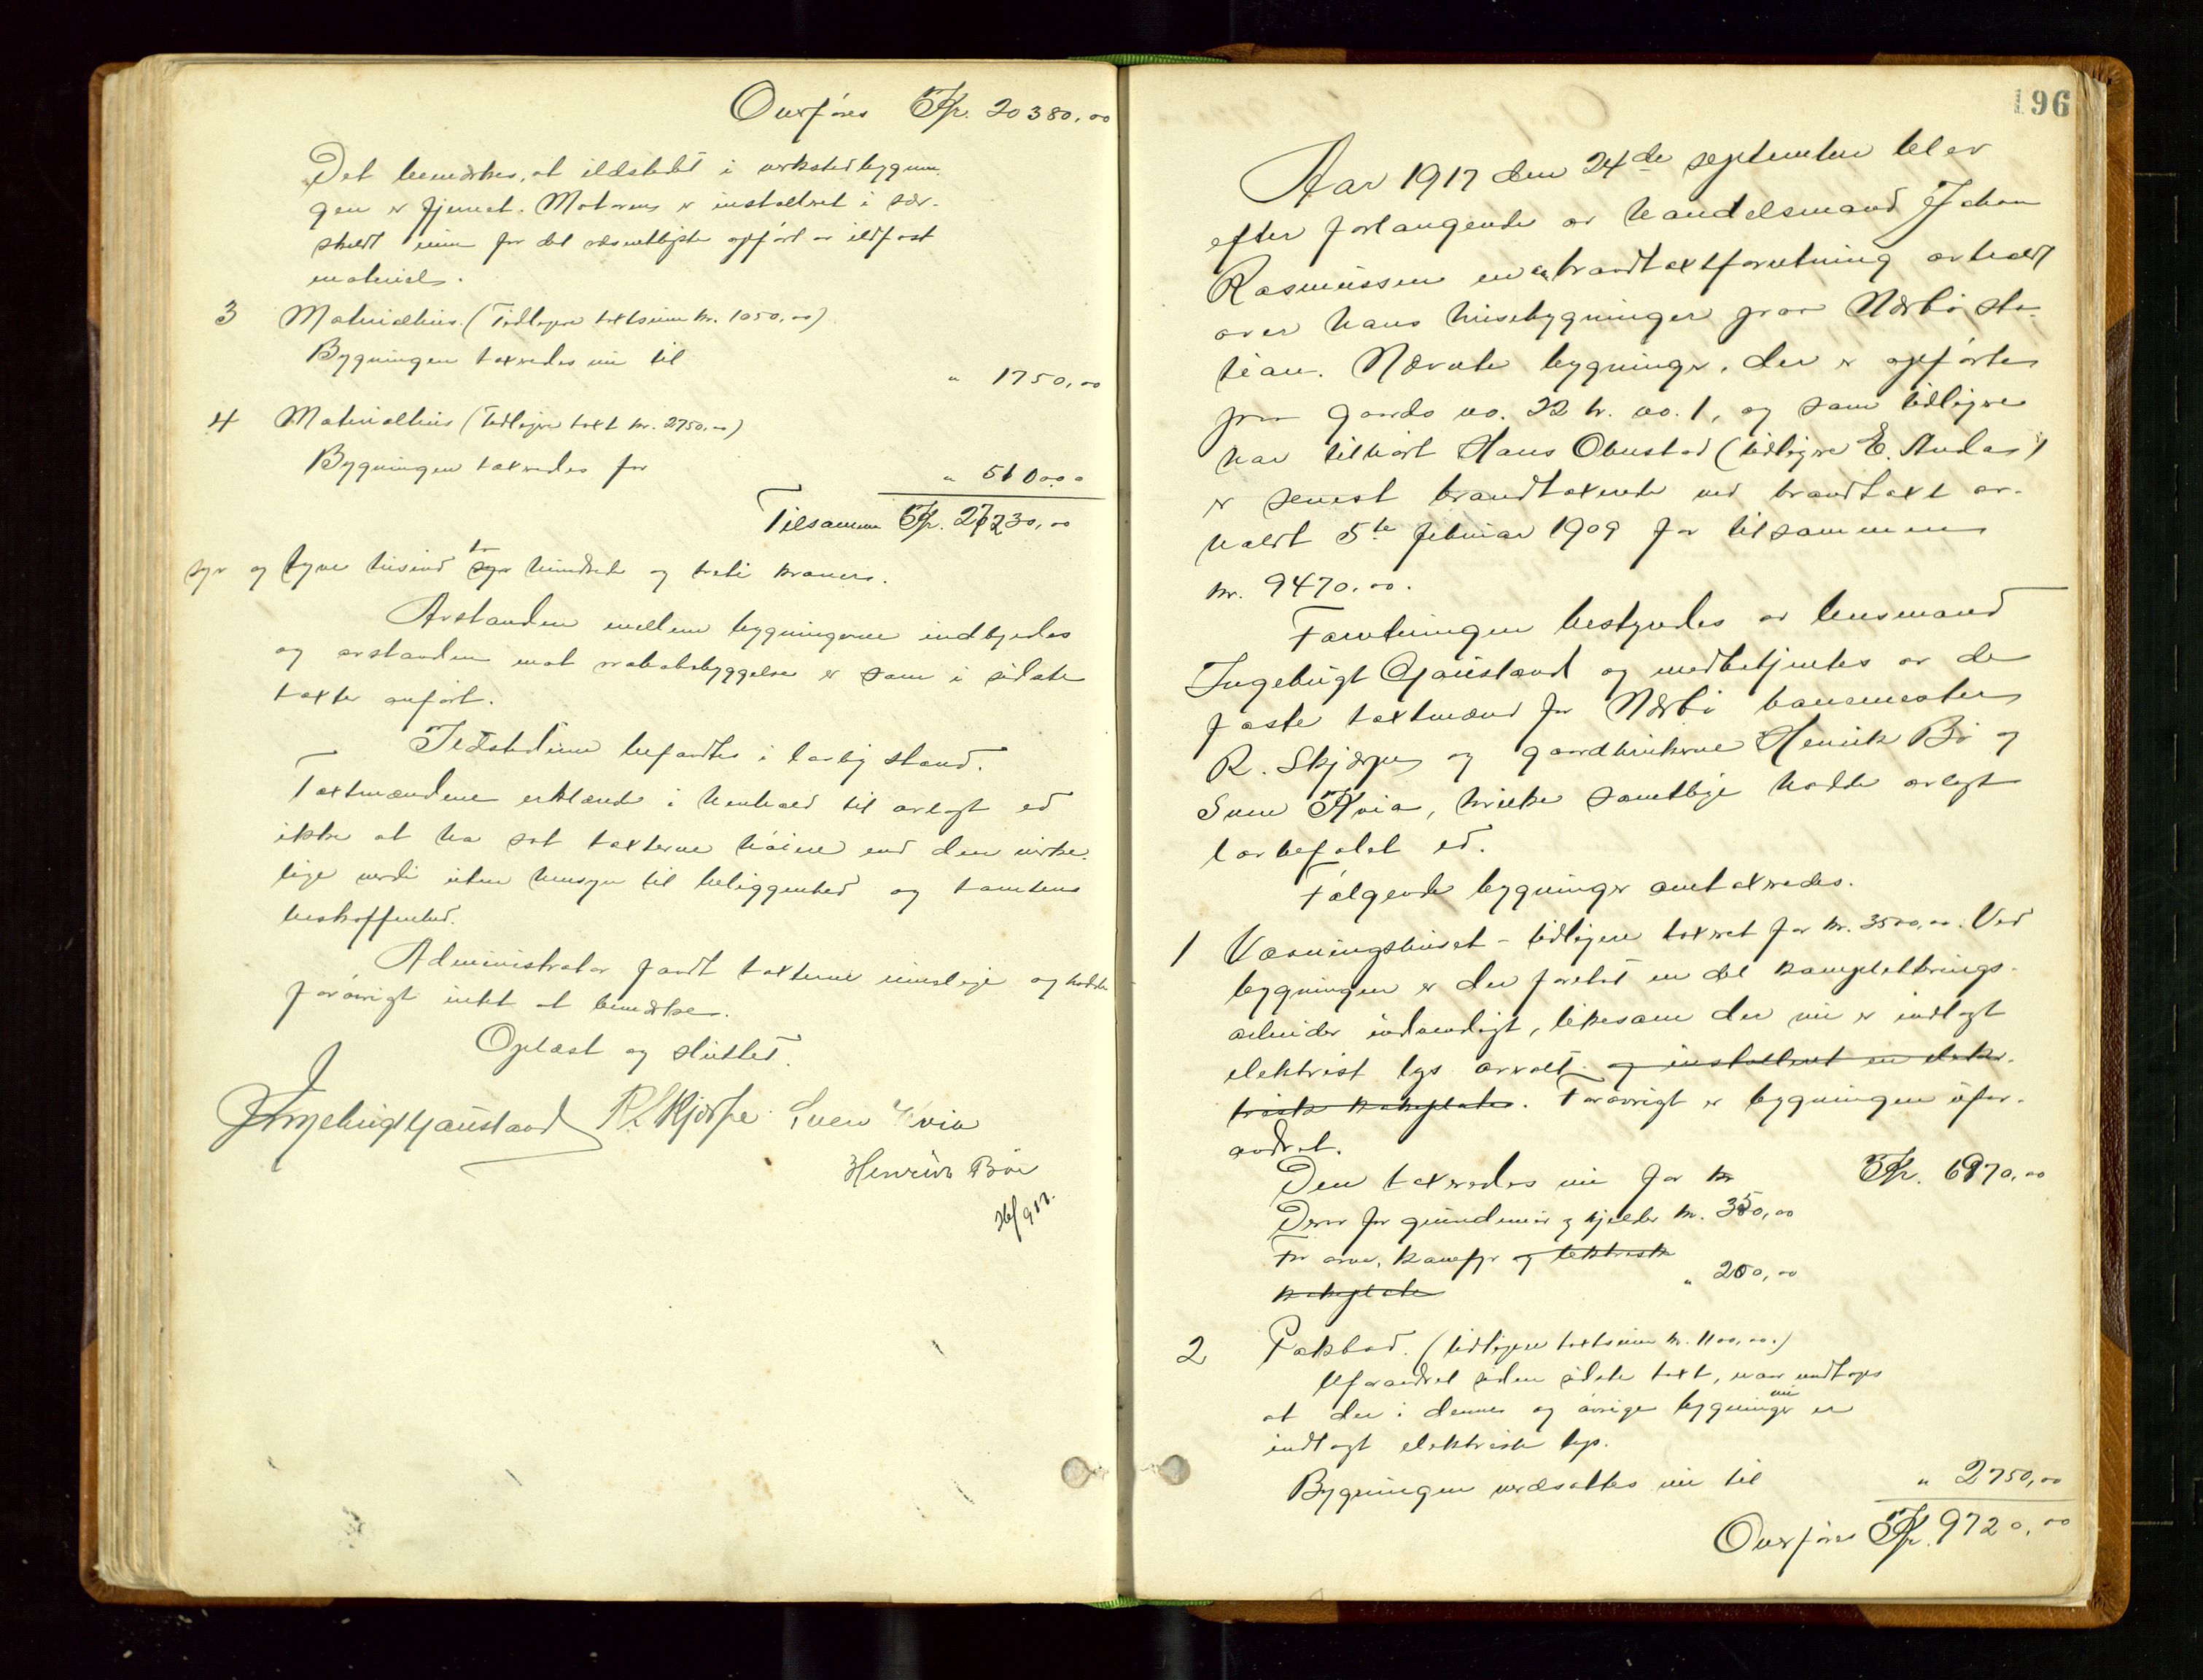 Overføres Kr. 20380,00
Det bemerkes, at ildstedet i verkstedbygnin-
gen er fjernet. Motoren er installeret i sær-
skildt rum for det væsentligste opført av ildfast
materiel.
3 Materialhus. (Tidligere taxtsum kr. 1050,00)
Bygningen taxeredes nu til
" 1750,00
4 Materialhus (Tidligere taxt kr. 2750,00)
Bygningen taxeredes for
" 5100.00
Tilsammen Kr. 27230,00
syv og tyve tusind to syv hundrede og treti kroner.
Avstanden mellem bygningerne indbyrdes
og avstanden mot nabobebyggelse er som i sidste
taxter anført.
Ildstederne befandtes i lovlig stand.
Taxtmændene erklærede i henhold til avlagt ed
ikke at ha sat taxterne høiere end den virke-
lige verdi uten hensyn til beliggenhed og tomtens
beskaffenhed.
Administrator fandt taxterne rimelige og hadde
forøvrigt intet at bemerke.
Oplæst og sluttet.
Ingebrigt Gausland R Skjærpe Sven Kvia
Henrik Böe
26/9 17.
196
Aar 1917 den 24de september blev
efter forlangende av handelsmand Johan
Rasmussen en brandtaxtforretning avholdt
over hans husebygninger paa Nærbø sta-
tion. Nævnte bygninger, der er opførte
paa gaards no. 22 br. no. 1, og som tidligere
har tilhørt Hans Obrestad (tidligere E. Audas)
er senest brandtaxerte ved brandtaxt av-
holdt 5te februar 1909 for tilsammen
kr. 9470.00.
Forretningen bestyredes av lensmand
Ingebrigt Gausland og medbetjentes av de
faste taxtmænd for Nærbø banemester
R. Skjærpe og gaardbrukerne Henrik Bø og
Sven Kvia, hvilke samtlige hadde avlagt
lovbefalet ed.
Følgende bygninger omtaxeredes.
1 Vaaningshuset - tidligere taxeret for kr. 3500,00. Ved
bygningen er der foretat en del kompletterings-
arbeider indvendigt, likesom der nu er indlagt
elektrisk lys overalt og installeret en elek-
trisk kokeplate. Forøvrigt er bygningen ufor-
andret.
Den taxeredes nu for kr Kr. 6970,00
Derav for grundmur og kjelder kr. 350,00
For ovne, komfyr og elektrisk
kokeplate " 200,00
2 Pakbod. (tidligere taxtsum kr. 1100,00.)
Uforandret siden sidste taxt, naar undtages
at der i dennes og øvrige bygninger nu er
indlagt elektrisk lys.
Bygningen verdsattes nu til
" 2750,00
Overføres Kr. 9720,00